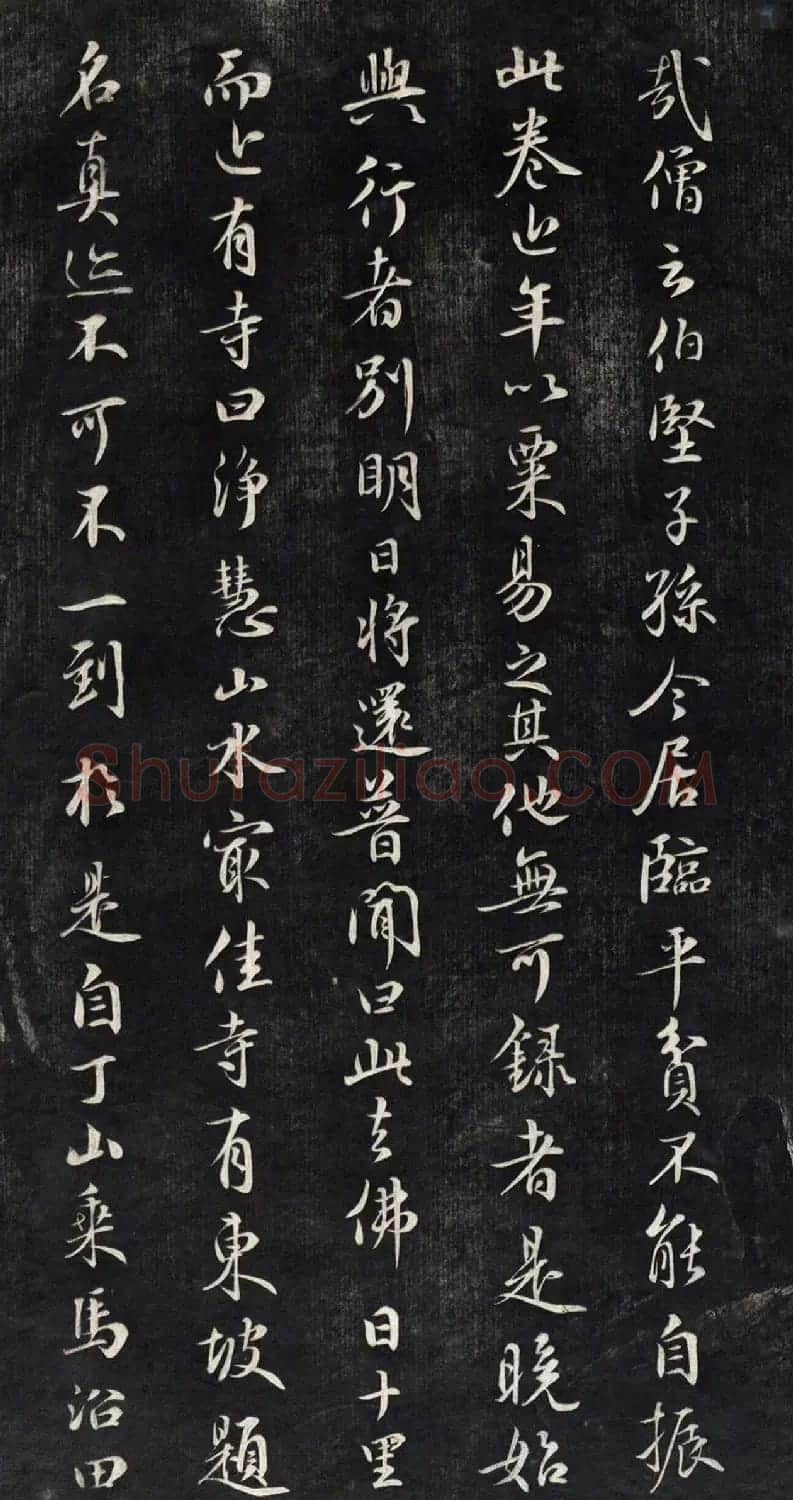 哉僧云伯堅子孫今居臨平貧不能自振
此卷近年以粟易之其他無可録者是晚始
與行者别明日將還普聞曰此去佛日十里
而近有寺曰淨慧山水㝡佳寺有東坡題
名真迹不可不一到於是自丁山乘馬沿田
Shufaziliao.COM